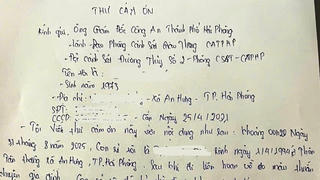 THƯ CẢM ƠN
Kính gửi, Ông Giám Đốc Công An Thành Phố Hải Phòng
- Lãnh Đạo Phòng Cảnh Sát Giao Thông CATPHP
- Đội Cảnh Sát Đường Thủy Số 2 - Phòng CSGT - CATPHP
Tên tôi là:
- Sinh năm 1973
- Địa chỉ: - Xã An Hưng - T.P. Hải Phòng
SĐT:
CCCD: Cấp Ngày 25/4/2021
- Tôi Viết thư cảm ơn này với nội dung như sau: khoảng 00h20 Ngày
31 tháng 8 năm 2025, Con rể tôi là Sinh ngày /1/1990 ở Thôn
xã An Hưng, T.P. Hải Phòng. Sau khi đi liên hoan về do mâu thuẫn
chuyện gia đình